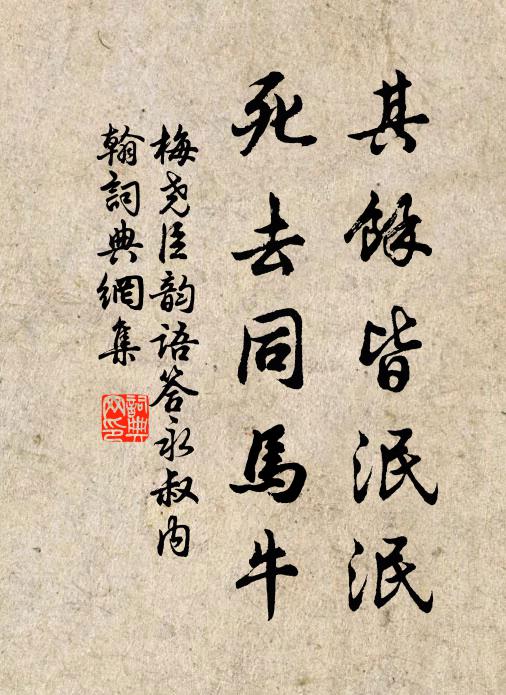 其餘皆泯泯
死去同馬牛
梅堯臣韵語答永叔内
翰詞典網集
詞典網印